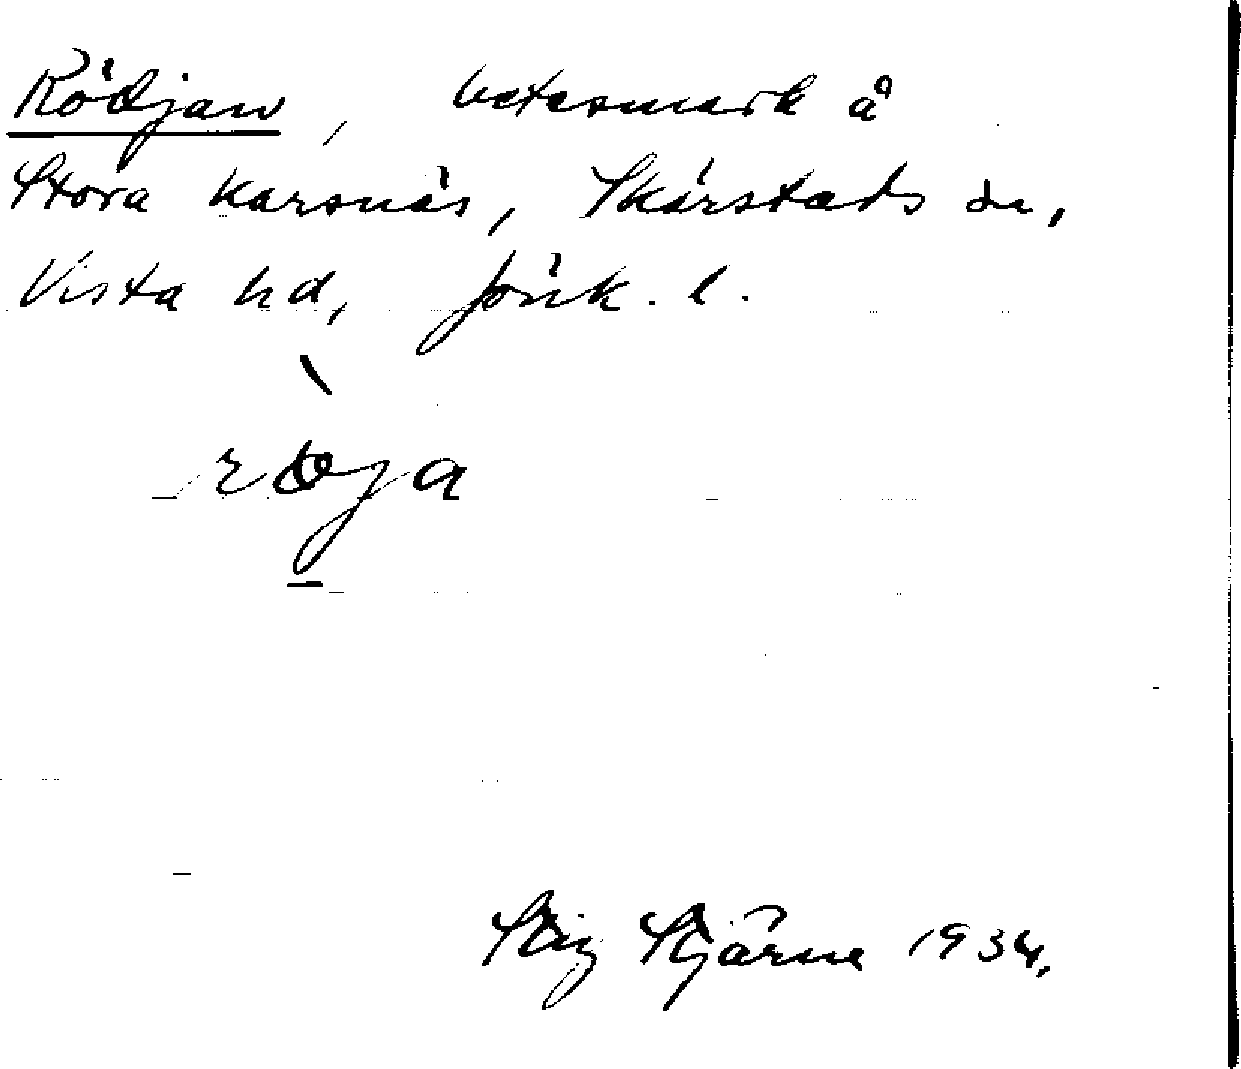 Rödjan, betesmark å
Stora Karsnäs, Skärstads sn,
Vista hd, Jönk. l.
Stig Stjärne 1934.